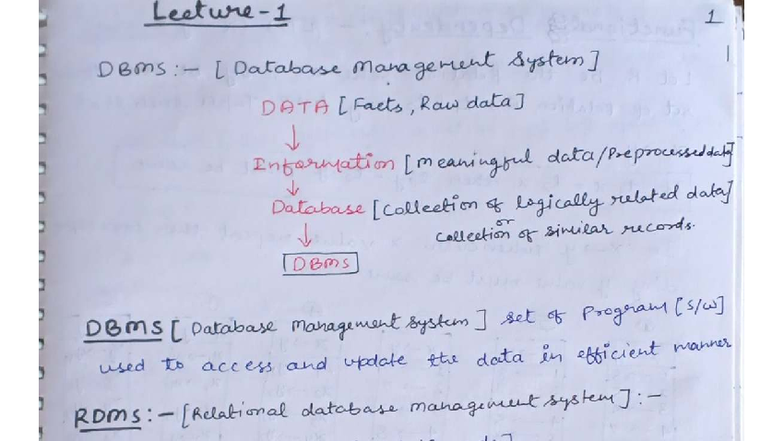 Lecture-1
1
DBMS:- [Database Management System]
DATA [Facts, Raw data]
Information [meaningful data/Preprocessed data]
Database [Collection of logically related data]
or
collection of similar records.
DBMS
DBMS [Database Management System] set of Program [S/W]
used to access and update the data in efficient manner
RDMS:- [Relational database management system]:-